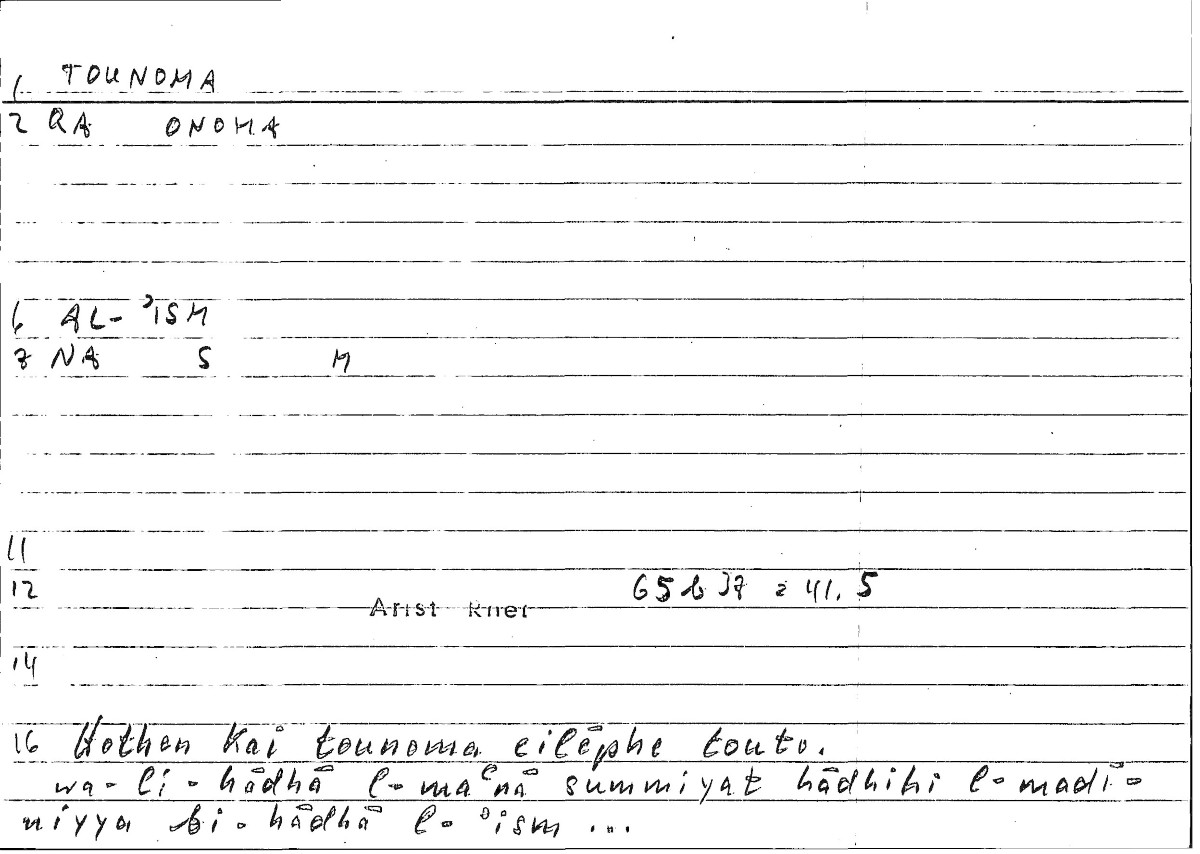 1 TOUNOMA
2 QA ONOMA
6 AL-ʾISM
7 NA S M
11
12 65b37 = 41.5
Arist Rhet
14
16 Hothen kai tounoma eilēphe touto.
wa-li-hādhā l-maʿnā summiyat hādhihi l-madī-
niyya bi-hādhā l-ʾism ...